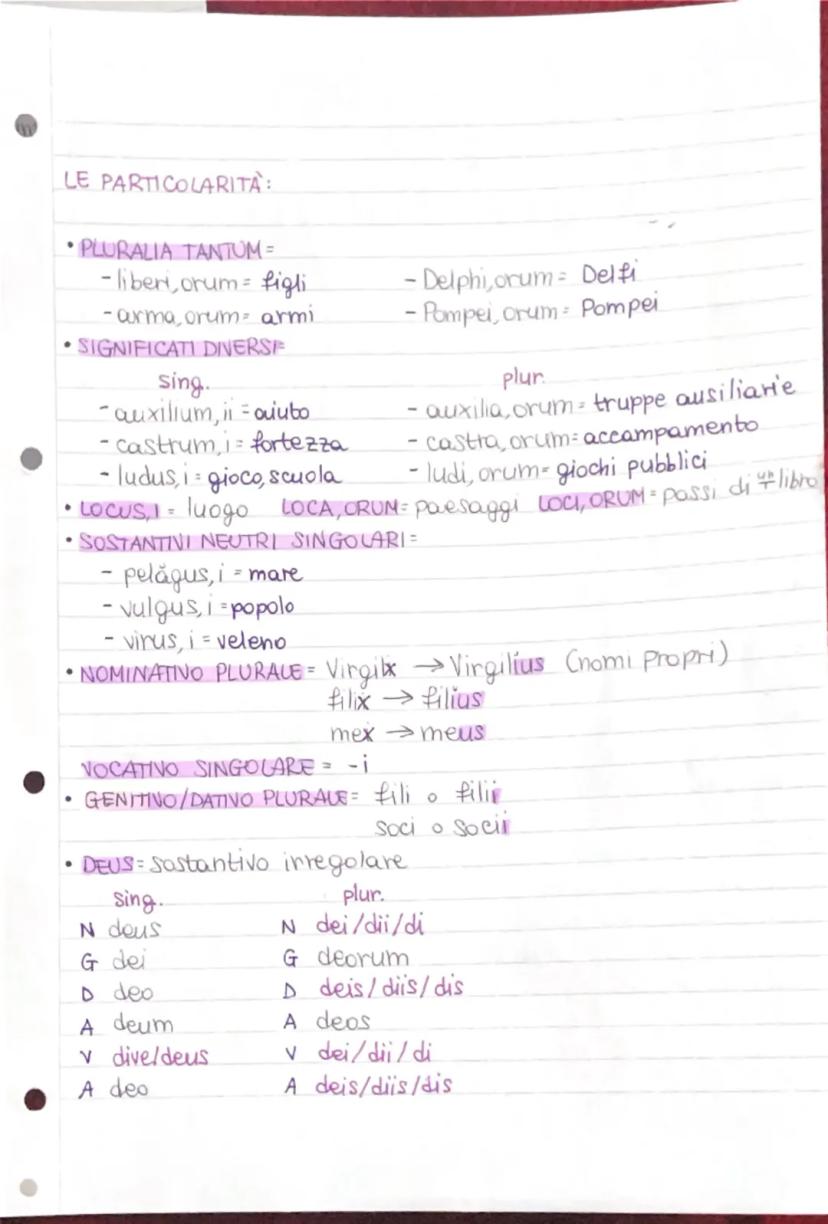 LE PARTICOLARITÀ:
• PLURALIA TANTUM =
- liberi, orum = figli - Delphi, orum = Delfi
- arma, orum = armi - Pompei, orum = Pompei
• SIGNIFICATI DIVERSI=
sing. plur.
- auxilium, ii = aiuto - auxilia, orum = truppe ausiliarie
- castrum, i = fortezza - castra, orum = accampamento
- ludus, i = gioco, scuola - ludi, orum = giochi pubblici
• LOCUS, I = luogo LOCA, ORUM = paesaggi LOCI, ORUM = passi di un libro
• SOSTANTIVI NEUTRI SINGOLARI =
- pelăgus, i = mare
- vulgus, i = popolo
- virus, i = veleno
• NOMINATIVO PLURALE = Virgilx → Virgilius (nomi propri)
filix → filius
mex → meus
VOCATIVO SINGOLARE = -i
• GENITIVO/DATIVO PLURALE = fili o filii
soci o socii
• DEUS = sostantivo irregolare
sing. plur.
N deus N dei/dii/di
G dei G deorum
D deo D deis/diis/dis
A deum A deos
V dive/deus V dei/dii/di
A deo A deis/diis/dis